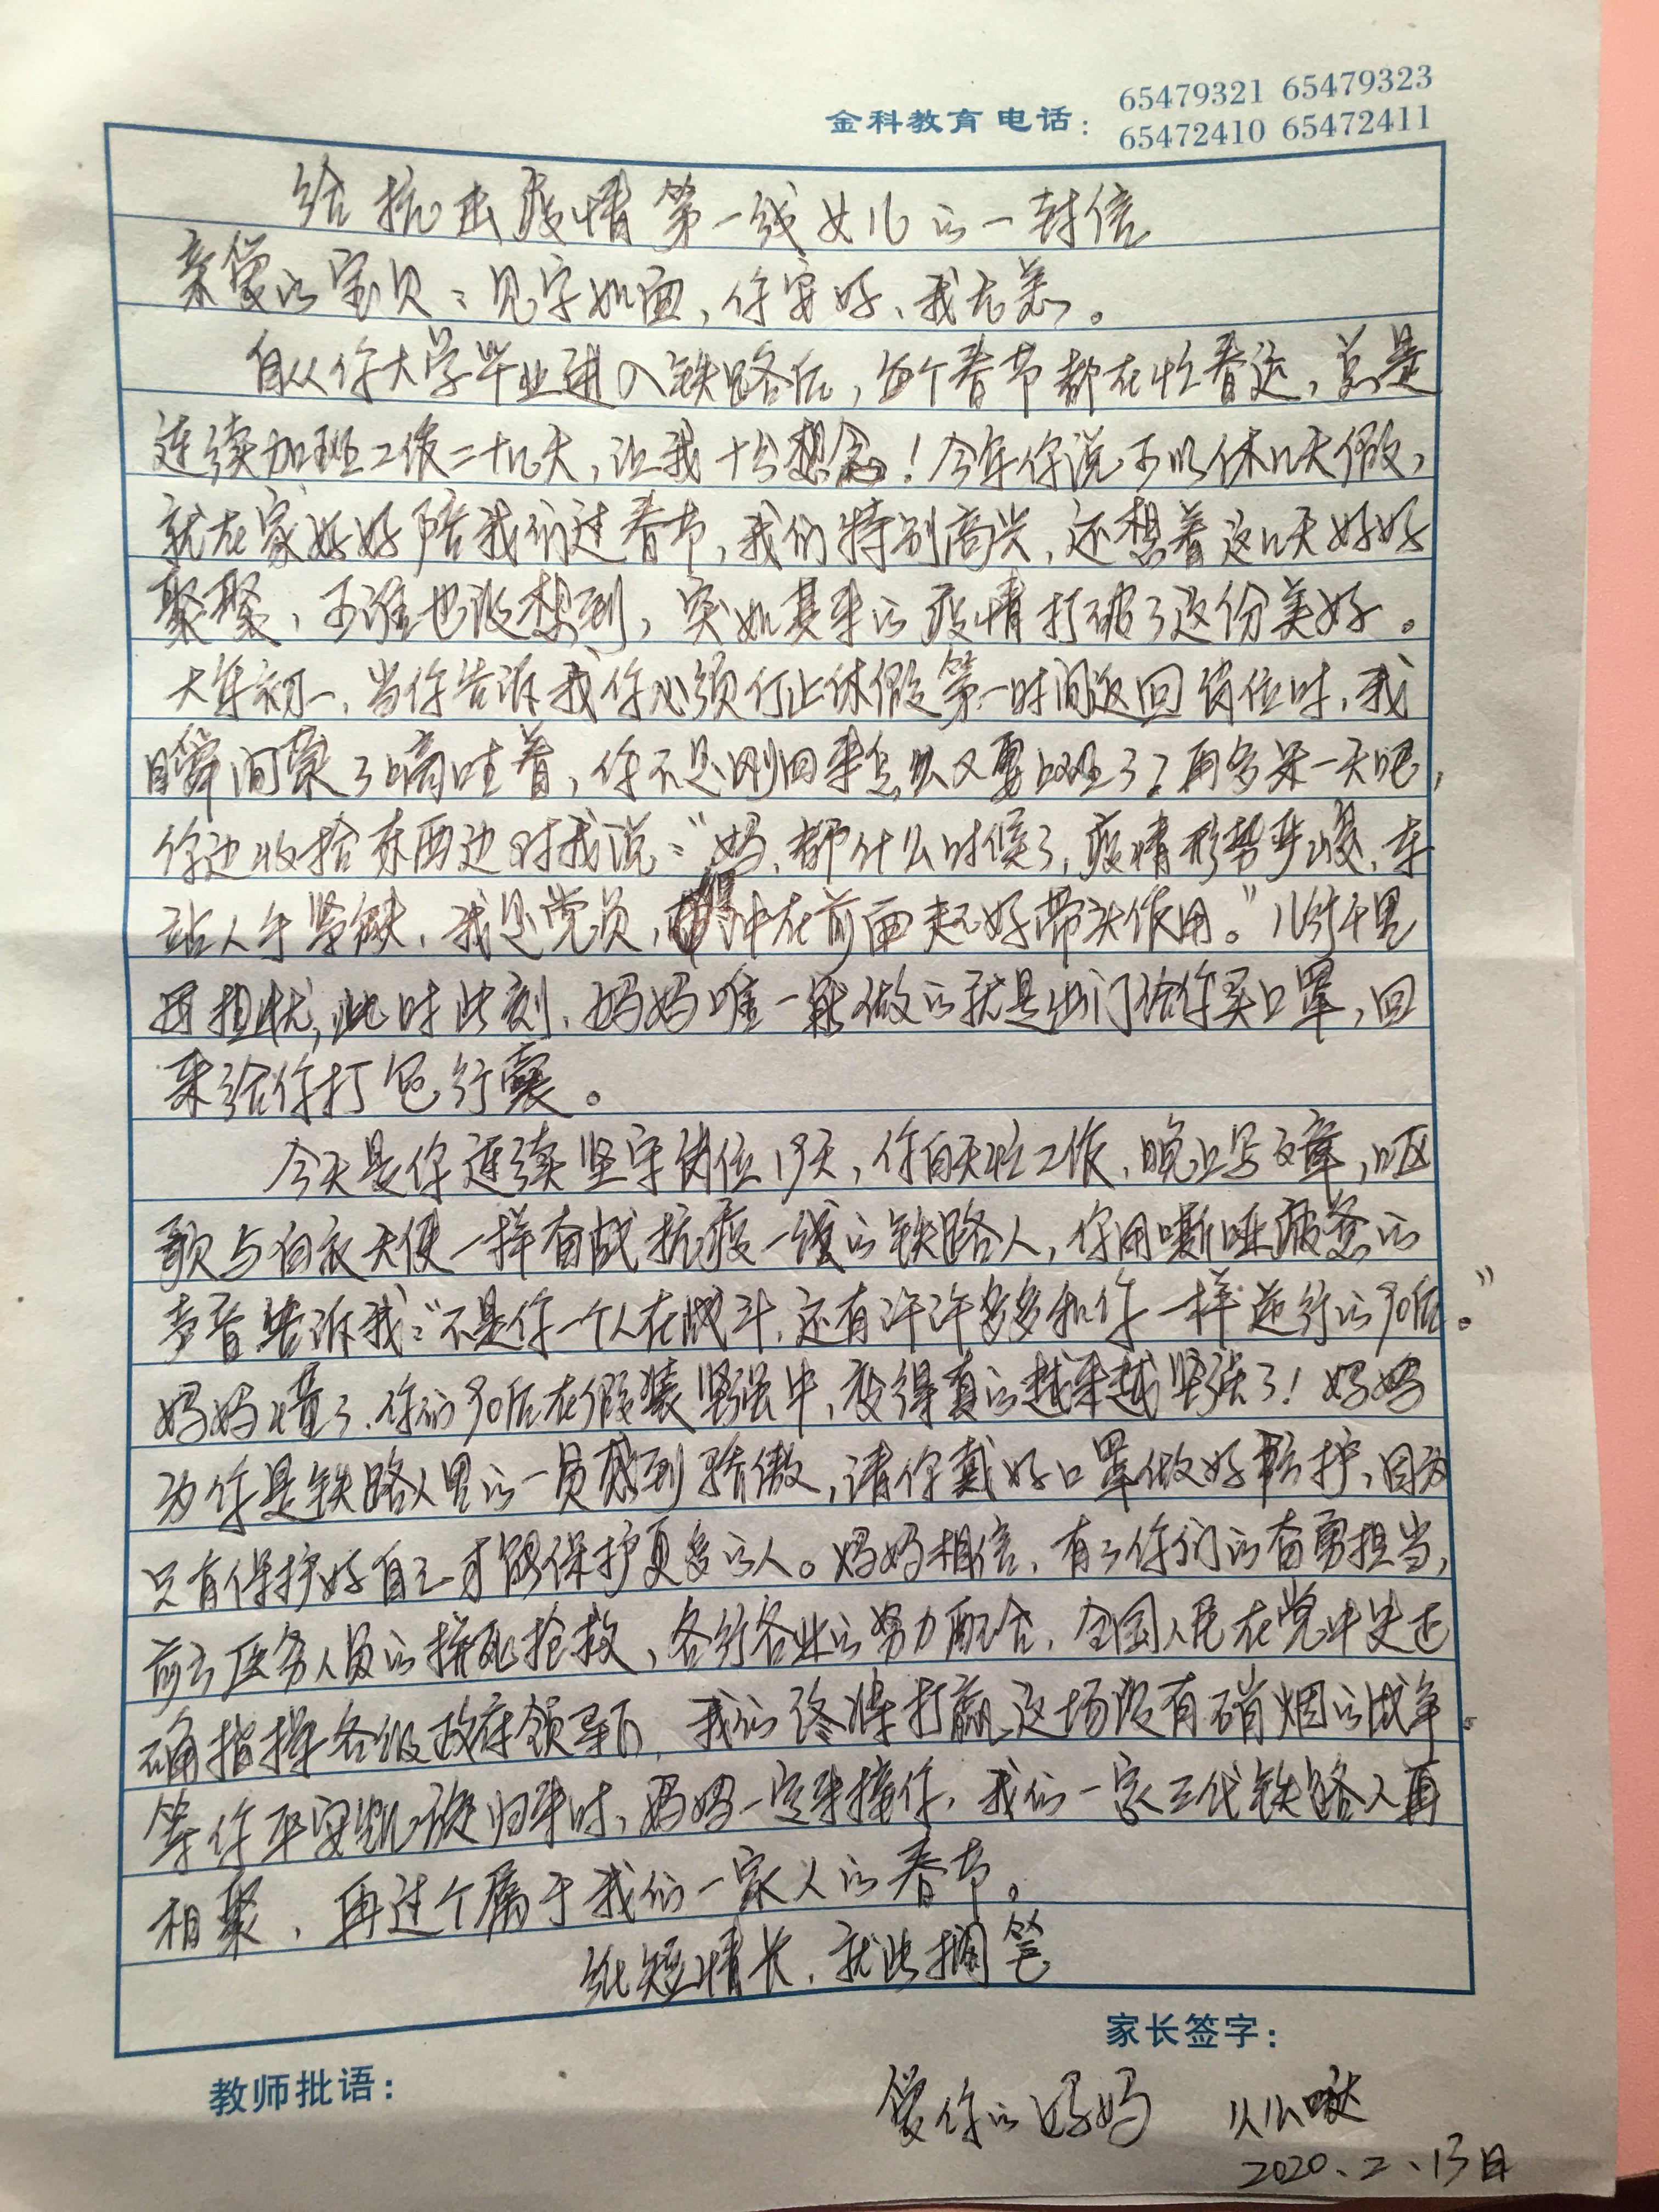 金科教育 电话: 65479321 65479323
65472410 65472411
给抗击疫情第一线女儿的一封信
亲爱的宝贝：见字如面，你安好、我无恙。
自从你大学毕业进入铁路后，每个春节都在忙春运，总是
连续加班工作二十几天，让我十分想念！今年你说可以休几天假，
就在家好好陪我们过春节，我们特别高兴，还想着这几天好好
聚聚，可谁也没想到，突如其来的疫情打破了这份美好。
大年初一，当你告诉我你必须停止休假第一时间返回岗位时，我
瞬间蒙了嘀咕着，你不是刚回来怎么又要上班了？再多呆一天吧，
你边收拾东西边对我说：“妈，都什么时候了，疫情形势严峻，车
站人手紧缺，我是党员，得冲在前面起好带头作用。”儿行千里
母担忧，此时此刻，妈妈唯一能做的就是出门给你买口罩，回
来给你打包行囊。
今天是你连续坚守岗位19天，你白天忙工作，晚上写文章，讴
歌与白衣天使一样奋战抗疫一线的铁路人，你用嘶哑疲惫的
声音告诉我：“不是你一个人在战斗，还有许许多多和你一样逆行的90后。”
妈妈懂了，你们90后在假装坚强中，变得真的越来越坚强了！妈妈
为你是铁路人里的一员感到骄傲，请你戴好口罩做好防护，因为
只有保护好自己才能保护更多的人。妈妈相信，有了你们的奋勇担当，
前方医务人员的拼死抢救，各行各业的努力配合，全国人民在党中央正
确指挥各级政府领导下，我们终将打赢这场没有硝烟的战争。
等你平安凯旋归来时，妈妈一定来接你，我们一家三代铁路人再
相聚，再过个属于我们一家人的春节。
纸短情长，就此搁笔
家长签字：
教师批语：
爱你的妈妈 么么哒
2020、2、13日